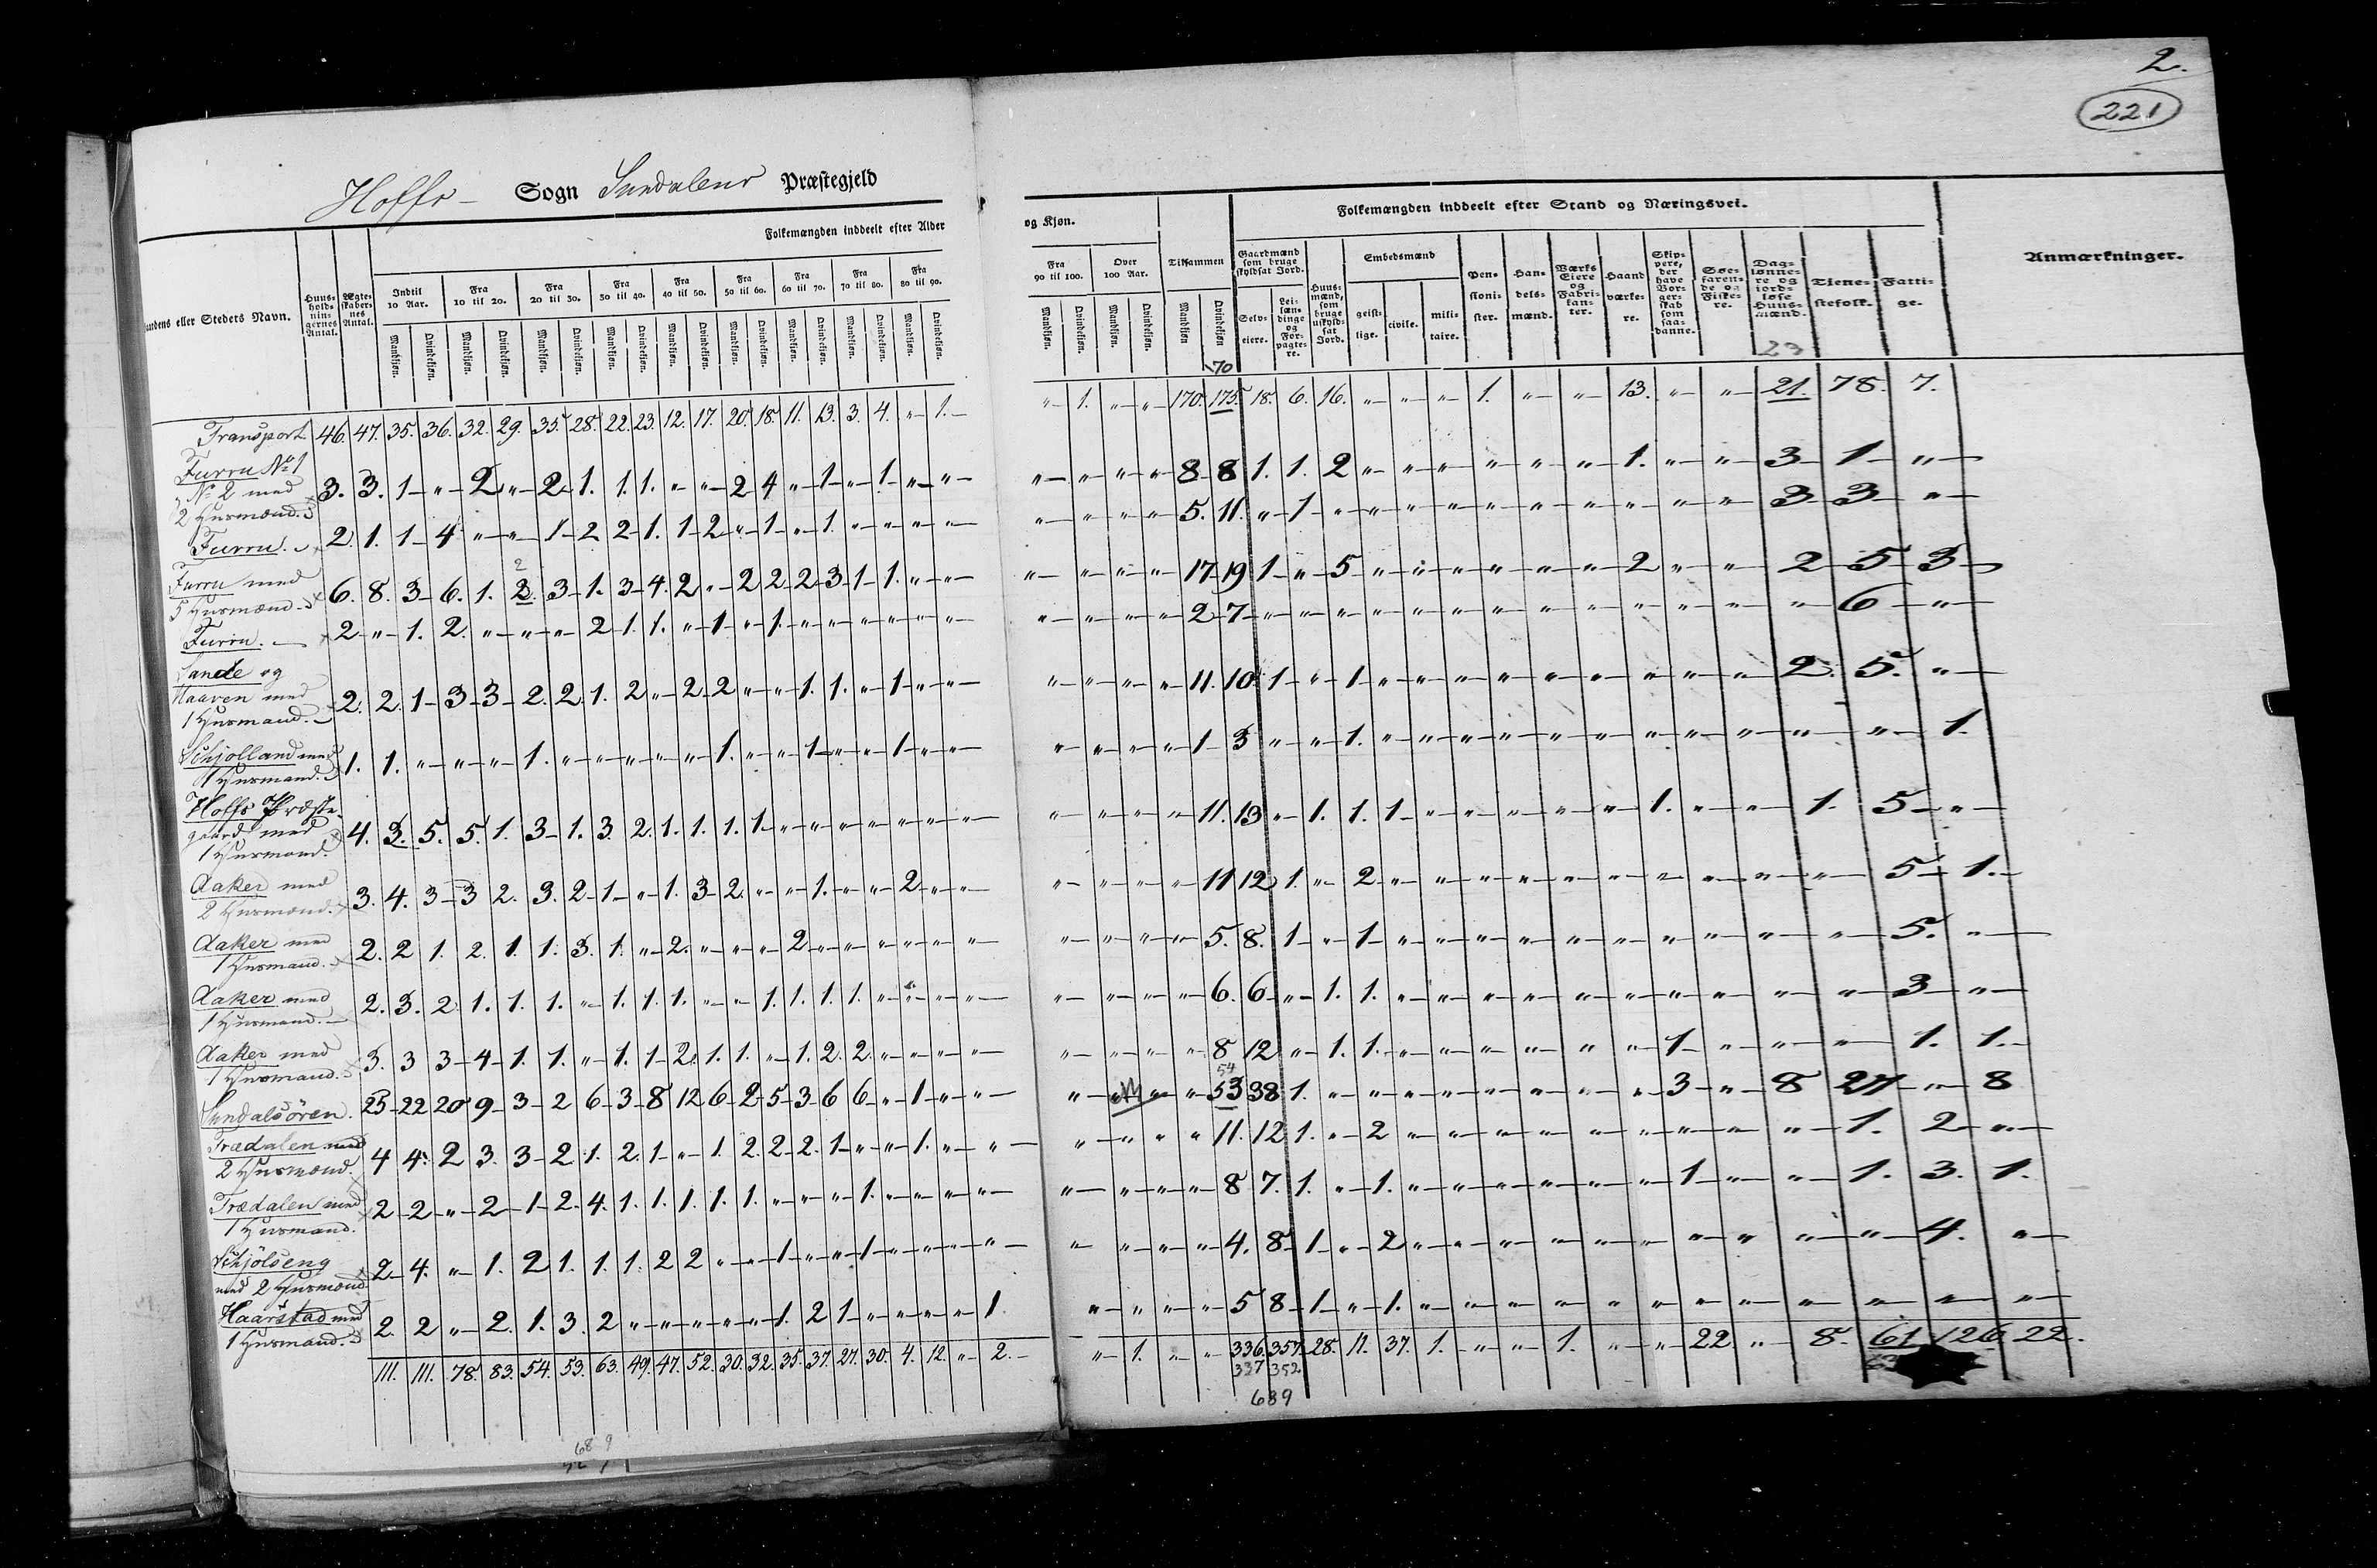 2.
221
Hoffs - Sogn Sundalens Præstegjeld
Folkemængden inddeelt efter Alder og Kjøn.
Folkemængden inddeelt efter Stand og Næringsvei.
Anmærkninger.
andens eller Stedets Navn.
Huus-holdnin-gernes Antal.
Ægte-skaber-nes Antal.
Indtil 10 Aar.
Fra 10 til 20.
Fra 20 til 30.
Fra 30 til 40.
Fra 40 til 50.
Fra 50 til 60.
Fra 60 til 70.
Fra 70 til 80.
Fra 80 til 90.
Fra 90 til 100.
Over 100 Aar.
Tilsammen
Mandkjøn. Qvindekjøn.
Gaardmænd som bruge skyldsat Jord.
Selv-eiere.
Lei-læn-dinge og For-pagte-re.
Huus-mænd, som bruge uskyld-sat Jord.
Embedsmænd
geist-lige. civile. mili-taire.
Pen-sioni-ster.
Han-dels-mænd.
Værks Eiere og Fabri-kan-ter.
Haand værke-re.
Skip-pere, der have Bor-ger-skab som saa-danne.
Søe-faren-de og Fiske-re.
Dag-lønne-re og jord-løse Huus-mænd.
Tjene-stefolk.
Fatti-ge.
70
23
Transport. 46. 47. 35. 36. 32. 29. 35. 28. 22. 23. 12. 17. 20. 18. 11. 13. 3. 4. " 1. " 1. " " 170. 175. 18. 6. 16. " " " 1. " " 13. " " 21. 78. 7.
Furru No 1
" No 2 med
2 Husmænd. 3. 3. 1 " 2 " 2 1. 1. 1. " " 2 4 " 1 " 1 " " " " " " 8 8 1. 1. 2 " " " " " " 1. " " 3 1 "
Furru. 2. 1. 1 4 " " 1 2 2 1. 1 2 " 1 " 1. " " " " " " " " 5. 11. " 1 " " " " " " " " " " 3 3 "
2
Furru med
5 Husmænd 6. 8. 3 6. 1. 3. 3 1. 3 4. 2 " 2 2 2 3 1 1. " " " " " " 17 19 1 " 5 " " " " " " 2 " " 2 5 3
Furru. 2 " 1. 2. " " " 2 1 1. " 1 " 1. " " " " " " " " " " 2 7 " " " " " " " " " " " " " 6 "
Sande og
Haaven med
1 Husmand. 2. 2. 1 3 3 2. 2. 1. 2 " 2 2 " " 1. 1. " 1 " " " " " " 11. 10. 1 " 1 " " " " " " " " " 2. 5. "
Schjolland med
1 Husmand. 1. 1. " " " 1. " " " " " 1. " " 1 " " 1 " " " " " " 1 3 " " 1. " " " " " " " " " " " 1.
Hoffs Præste-
gaard med
1 Husmand. 4. 3. 5. 5. 1. 3 1. 3. 2. 1. 1. 1. 1 " " " " " " " " " " " 11. 13 " 1. 1. 1 " " " " " 1. " " 1. 5 "
Aaker med
2 Husmænd. 3. 4. 3 3 2. 3. 2 1 " 1. 3 2. " " 1. " " 2 " " " " " " 11 12 1. " 2 " " " " " " " " " " 5 1.
Aaker med
1 Husmand. 2. 2 1. 2. 1. 1. 3. 1. " 2. " " " 2 " " " " " " " " " " 5. 8. 1 " 1 " " " " " " " " " " 5. "
Aaker med
1 Husmand. 2. 3. 2 1. 1. 1. " 1. 1. 1. " " 1. 1. 1. 1. " " " " " " " " 6. 6 " 1. 1. " " " " " " " " " " 3 "
Aaker med
1 Husmand. 3. 3 3 4 1. 1. " 1. 1 2. 1. 1. " 1. 2. 2. " " " " " " " " 8 12 " 1. 1. " " " " " " 1 " " " 1. 1.
54
Sundalsören. 23 22 20 9 3 2 6 3 8 12 6 2 5 3 6 6 " 1 " " " " " 53 38 1. " " " " " " " " 3 " 8 27 " 8
Trædalen med
2 Husmænd. 4 4. 2 3. 3 2 1. 2. 1 " 1. 2. 2 2. 1 " " 1. " " " " " " 11. 12 1. " 2 " " " " " " " " " 1. 2 "
Trædalen med
1 Husmand. 2 2 " 2 1 2. 4. 1. 1. 1. 1. 1. " " " 1. " " " " " " " " 8 7. 1. " 1. " " " " " " 1 " " 1. 3. 1.
Schjölseng
med 2 Husmænd 2 4. " 1. 2 1. 1. 1. 2 2 " " 1 " " 1 " " " " " " " " 4. 8 1 " 2 " " " " " " " " " " 4. "
Haarstad med
1 Husmand. 2. 2 " 2. 1. 3. 2 " " " " " 1. 2 1 " " " " 1. " " " " 5 8 1 " 1. " " " " " " " " " " " "
111. 111. 78. 83. 54. 53. 63. 49. 47. 52. 30. 32. 35. 37. 27. 30. 4. 12. " 2. " 1. " " 336. 357. 28. 11. 37. 1. " " 1. " " 22. " 8. 61 126 22.
337 352
689
689